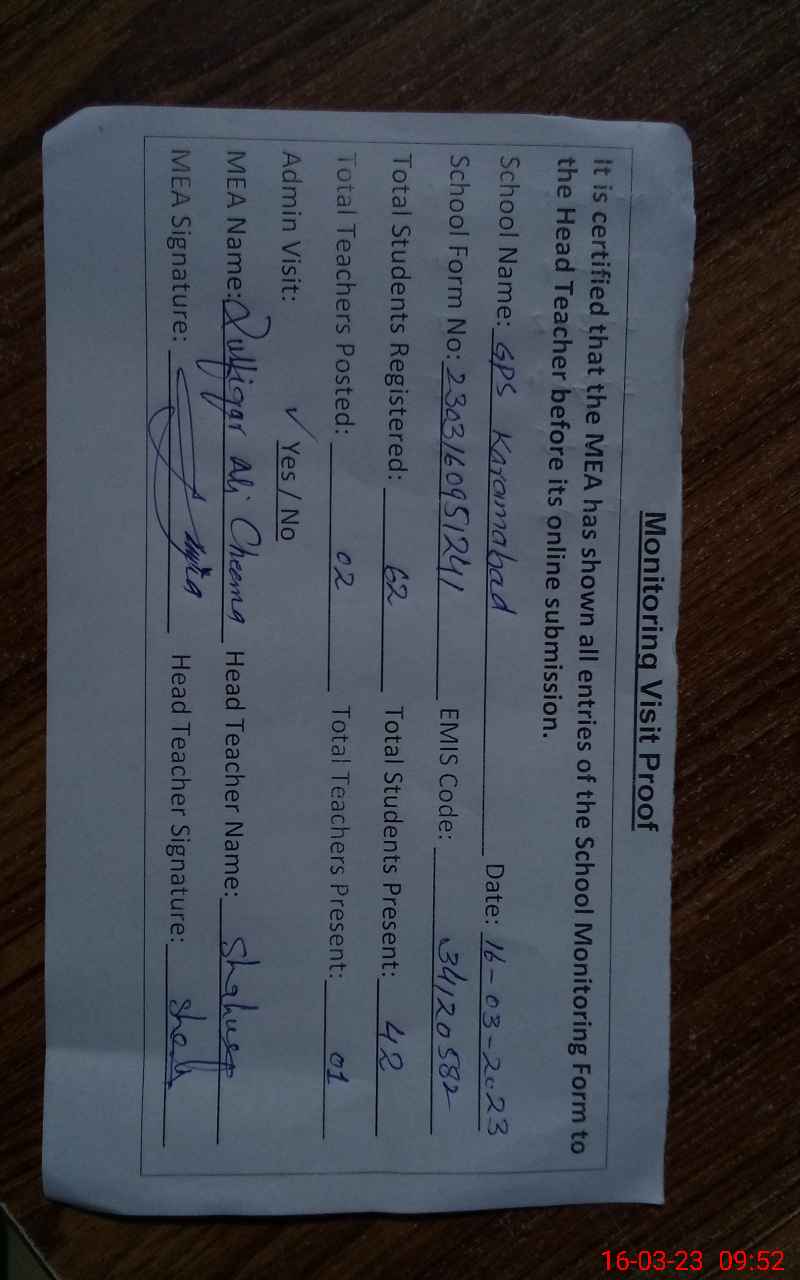 Monitoring Visit Proof
It is certified that the MEA has shown all entries of the School Monitoring Form to
the Head Teacher before its online submission.
School Name: GPS Karamabad Date: 16-03-2023
School Form No: 2303160951241 EMIS Code: 34120582
Total Students Registered: 62 Total Students Present: 42
Total Teachers Posted: 02 Total Teachers Present: 01
Admin Visit: ✓ Yes / No
MEA Name: Zulfiqar Ali Cheema Head Teacher Name:
MEA Signature: Head Teacher Signature:
16-03-23 09:52